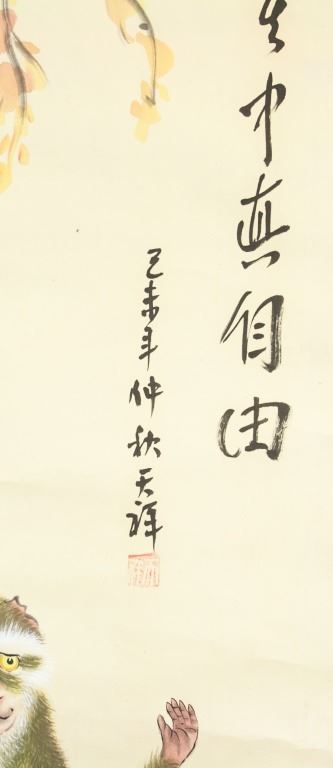 中真自由
己未年仲秋天祥